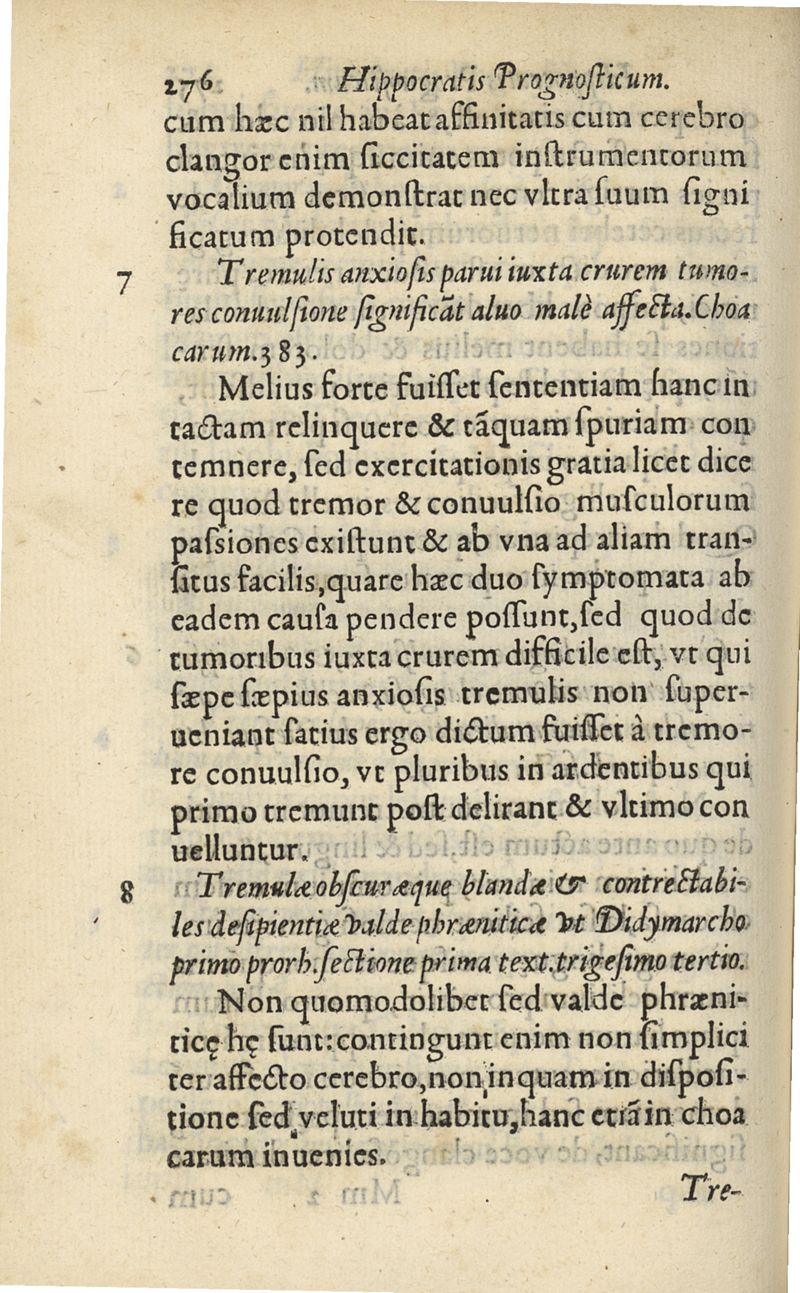 276 Hippocratis Prognoſticum.
cum hæc nil habeat affinitatis cum cerebro
clangor enim ſiccitatem inſtrumentorum
vocalium demonſtrat nec vltra ſuum ſigni
ficatum protendit.
7 Tremulis anxioſis parui iuxta crurem tumo-
res conuulſione ſignificãt aluo malè affecta. Choa
carum. 383.
Melius forte fuiſſet ſententiam hanc in
tactam relinquere & tãquam ſpuriam con
temnere, ſed exercitationis gratia licet dice
re quod tremor & conuulſio muſculorum
paſsiones exiſtunt & ab vna ad aliam tran-
ſitus facilis, quare hæc duo ſymptomata ab
eadem cauſa pendere poſſunt, ſed quod de
tumoribus iuxta crurem difficile eſt, vt qui
ſæpe ſæpius anxioſis tremulis non ſuper-
ueniant ſatius ergo dictum fuiſſet à tremo-
re conuulſio, vt pluribus in ardentibus qui
primo tremunt poſt delirant & vltimo con
uelluntur.
8 Tremulæ obſcuræque blandæ & contrectabi-
les deſipientiæ valde phræniticæ vt Didymarcho
primo prorh. ſectione prima text. trigeſimo tertio.
Non quomodolibet ſed valde phræni-
ticę hę ſunt: contingunt enim non ſimplici
ter affecto cerebro, non inquam in diſpoſi-
tione ſed veluti in habitu, hanc etiã in choa
carum inuenies.
Tre-